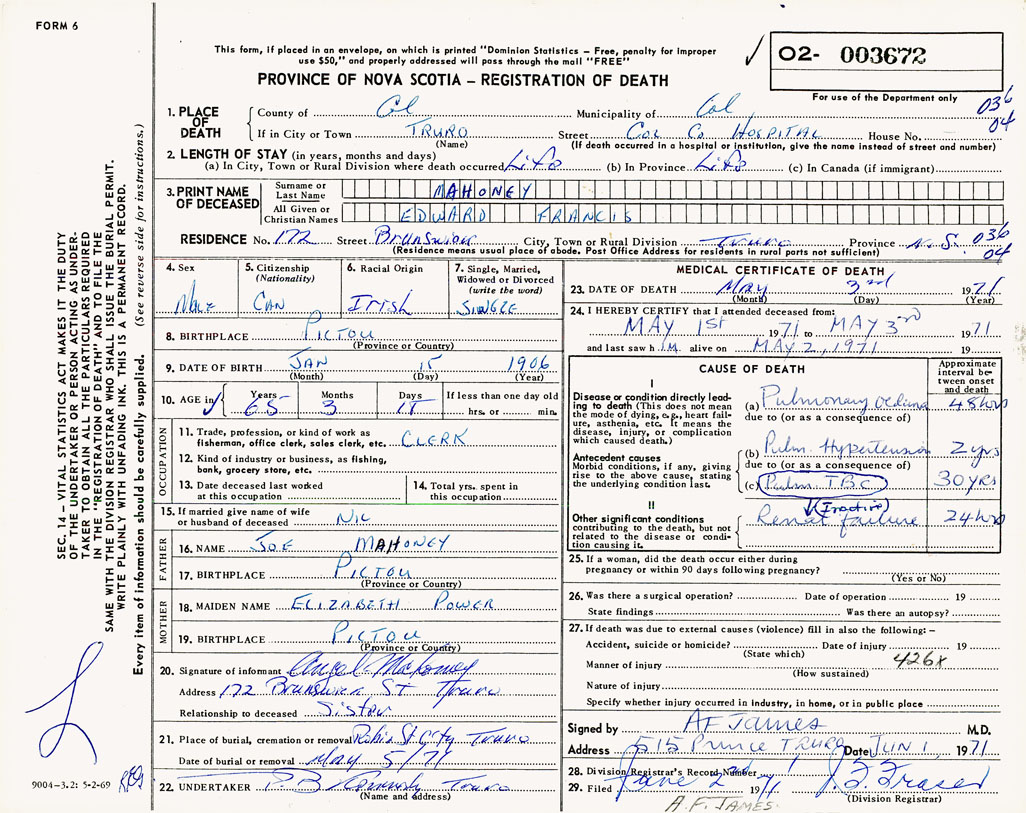 FORM 6
This form, if placed in an envelope, on which is printed "Dominion Statistics – Free, penalty for improper
use $50," and properly addressed will pass through the mail "FREE"
PROVINCE OF NOVA SCOTIA – REGISTRATION OF DEATH
02- 003672
For use of the Department only
036
04
1. PLACE OF DEATH
County of Col Municipality of Col
If in City or Town TRURO Street COL CO HOSPITAL House No.
(Name) (If death occurred in a hospital or institution, give the name instead of street and number)
2. LENGTH OF STAY (in years, months and days)
(a) In City, Town or Rural Division where death occurred Life (b) In Province Life (c) In Canada (if immigrant)
3. PRINT NAME OF DECEASED
Surname or Last Name MAHONEY
All Given or Christian Names EDWARD FRANCIS
RESIDENCE No. 172 Street Brunswick City, Town or Rural Division Truro Province N.S. 036
04
(Residence means usual place of abode. Post Office Address for residents in rural parts not sufficient)
4. Sex
Male
5. Citizenship
(Nationality)
CAN
6. Racial Origin
IRISH
7. Single, Married,
Widowed or Divorced
(write the word)
SINGLE
8. BIRTHPLACE PICTOU
(Province or County)
9. DATE OF BIRTH JAN 15 1906
(Month) (Day) (Year)
10. AGE in
Years Months Days If less than one day old
65 3 18 hrs. or min.
OCCUPATION
11. Trade, profession, or kind of work as
fisherman, office clerk, sales clerk, etc. CLERK
12. Kind of industry or business, as fishing,
bank, grocery store, etc.
13. Date deceased last worked
at this occupation
14. Total yrs. spent in
this occupation
15. If married give name of wife
or husband of deceased NIL
FATHER
16. NAME JOE MAHONEY
17. BIRTHPLACE PICTOU
(Province or Country)
MOTHER
18. MAIDEN NAME ELIZABETH POWER
19. BIRTHPLACE PICTOU
(Province or Country)
20. Signature of informant Mahoney
Address 172 Brunswick ST Truro
Relationship to deceased Sister
21. Place of burial, cremation or removal Robie St City Truro
Date of burial or removal May 5/71
22. UNDERTAKER Truro
(Name and address)
MEDICAL CERTIFICATE OF DEATH
23. DATE OF DEATH May 3rd 1971
(Month) (Day) (Year)
24. I HEREBY CERTIFY that I attended deceased from:
MAY 1st 1971 to MAY 3rd 1971
and last saw h im alive on MAY 2, 1971 19
CAUSE OF DEATH
Approximate interval between onset and death
I
Disease or condition directly leading to death (This does not mean the mode of dying, e.g., heart failure, asthenia, etc. It means the disease, injury, or complication which caused death.)
(a) Pulmonary Oedema 48 hrs
due to (or as a consequence of)
Antecedent causes
Morbid conditions, if any, giving rise to the above cause, stating the underlying condition last.
(b) Pulm. Hypertension 2 yrs
due to (or as a consequence of)
(c) Pulm. TBC 30 YRS
II
(Inactive)
Other significant conditions
contributing to the death, but not related to the disease or condition causing it.
Renal failure 24 hrs
25. If a woman, did the death occur either during
pregnancy or within 90 days following pregnancy?
(Yes or No)
26. Was there a surgical operation? Date of operation 19
State findings Was there an autopsy?
27. If death was due to external causes (violence) fill in also the following: –
Accident, suicide or homicide? Date of injury 19
(State which)
426X
Manner of injury
(How sustained)
Nature of injury
Specify whether injury occurred in industry, in home, or in public place
Signed by AF JAMES M.D.
Address 515 Prince TRURO Date JUN 1 1971
28. Division Registrar's Record Number
29. Filed June 2nd 1971 Fraser
(Division Registrar)
A.F. JAMES.
SEC. 14 – VITAL STATISTICS ACT MAKES IT THE DUTY
OF THE UNDERTAKER OR PERSON ACTING AS UNDER-
TAKER TO OBTAIN ALL THE PARTICULARS REQUIRED
IN THE "REGISTRATION OF DEATH" AND TO FILE THE
SAME WITH THE DIVISION REGISTRAR WHO SHALL ISSUE THE BURIAL PERMIT.
WRITE PLAINLY WITH UNFADING INK. THIS IS A PERMANENT RECORD.
Every item of information should be carefully supplied. (See reverse side for instructions.)
9004–3.2: 5-2-69